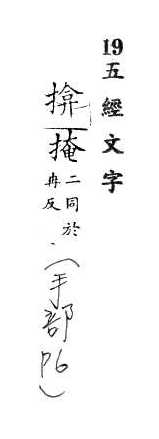 19五經文字
揜掩二同於冉反
(手部P6)